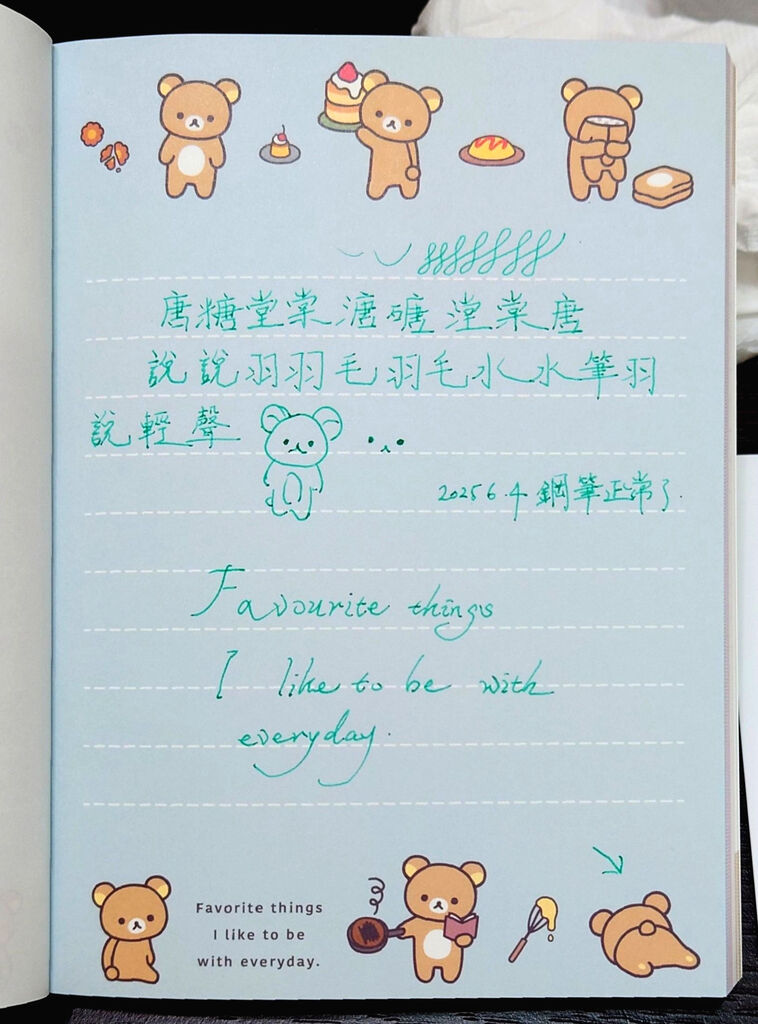 唐糖堂棠溏磄漟棠唐
說說羽羽毛羽毛水水筆羽
說輕聲
2025 6.4 鋼筆正常了.
Favourite things
I like to be with
everyday.
Favorite things
I like to be
with everyday.